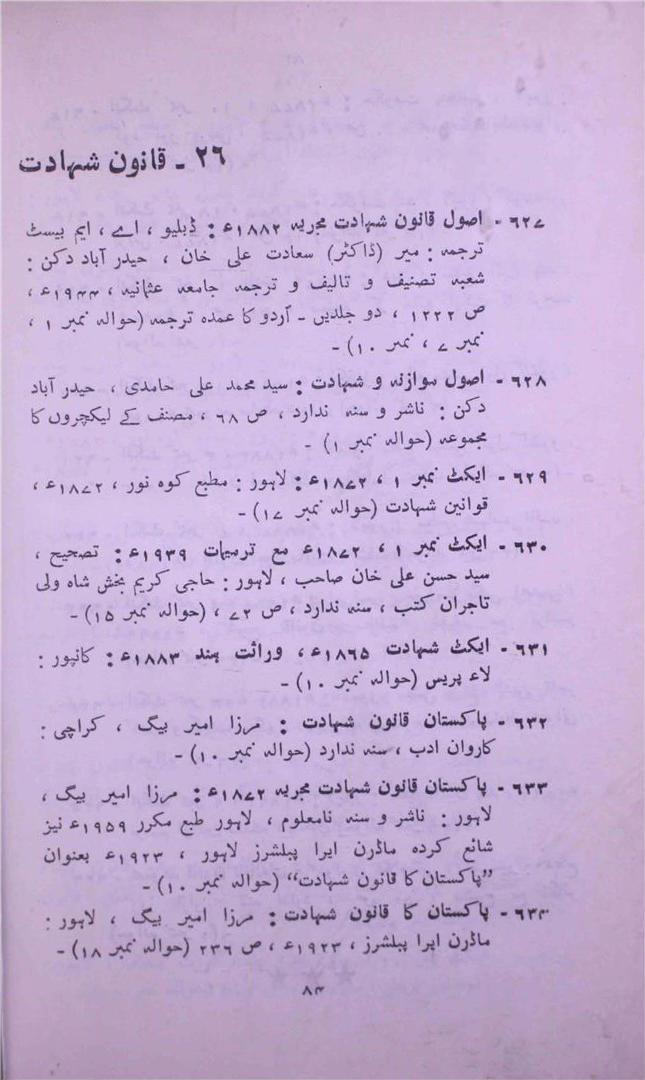 ۲۶ - قانون شہادت
۶۲۷ - اصول قانون شہادت مجریہ ۱۸۸۲ء : ڈبلیو ، اے ، ایم بیسٹ
ترجمہ : میر (ڈاکٹر) سعادت علی خان ، حیدر آباد دکن :
شعبہ تصنیف و تالیف و ترجمہ جامعہ عثمانیہ ، ۱۹۴۴ء ،
ص ۱۲۲۲ ، دو جلدیں - اُردو کا عمدہ ترجمہ (حوالہ نمبر ۱ ،
نمبر ۷ ، نمبر ۱۰) -
۶۲۸ - اصول موازنہ و شہادت : سید محمد علی حامدی ، حیدر آباد
دکن : ناشر و سنہ ندارد ، ص ۶۸ ، مصنف کے لیکچروں کا
مجموعہ (حوالہ نمبر ۱) -
۶۲۹ - ایکٹ نمبر ۱ ، ۱۸۷۲ء : لاہور : مطبع کوہ نور ، ۱۸۷۲ء ،
قوانین شہادت (حوالہ نمبر ۱۷) -
۶۳۰ - ایکٹ نمبر ۱ ، ۱۸۷۲ء مع ترمیمات ۱۹۳۹ء : تصحیح ،
سید حسن علی خان صاحب ، لاہور : حاجی کریم بخش شاہ ولی
تاجران کتب ، سنہ ندارد ، ص ۷۲ ، (حوالہ نمبر ۱۵) -
۶۳۱ - ایکٹ شہادت ۱۸۶۵ء ، وراثت ہند ۱۸۸۳ء : کانپور :
لاء پریس (حوالہ نمبر ۱۰) -
۶۳۲ - پاکستان قانون شہادت : مرزا امیر بیگ ، کراچی :
کاروان ادب ، سنہ ندارد (حوالہ نمبر ۱۰) -
۶۳۳ - پاکستان قانون شہادت مجریہ ۱۸۷۲ء : مرزا امیر بیگ ،
لاہور : ناشر و سنہ نامعلوم ، لاہور طبع مکرر ۱۹۵۹ء نیز
شائع کردہ ماڈرن ایرا پبلشرز لاہور ، ۱۹۲۳ء بعنوان
”پاکستان کا قانون شہادت“ (حوالہ نمبر ۱۰) -
۶۳۴ - پاکستان کا قانون شہادت : مرزا امیر بیگ ، لاہور :
ماڈرن ایرا پبلشرز ، ۱۹۲۳ء ، ص ۲۳۶ (حوالہ نمبر ۱۸) -
۸۴